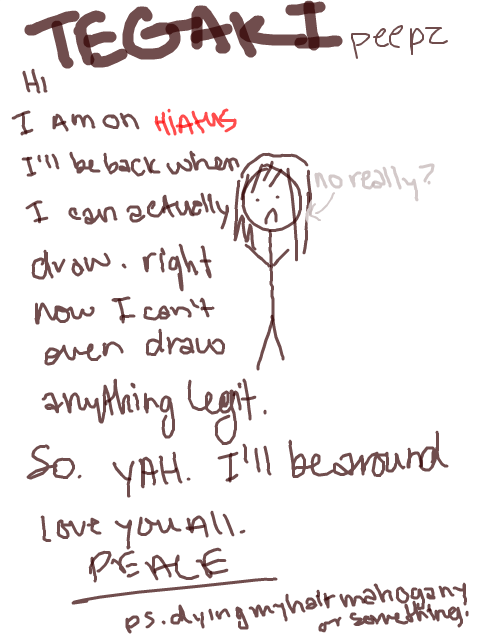 TEGAKI peepz
Hi
I am on Hiatus
I'll be back when
I can actually
no really?
draw. right
now I can't
even draw
anything legit.
So. YAH. I'll be around
love you all.
PEACE
ps. dying my hair mahogany
or something.